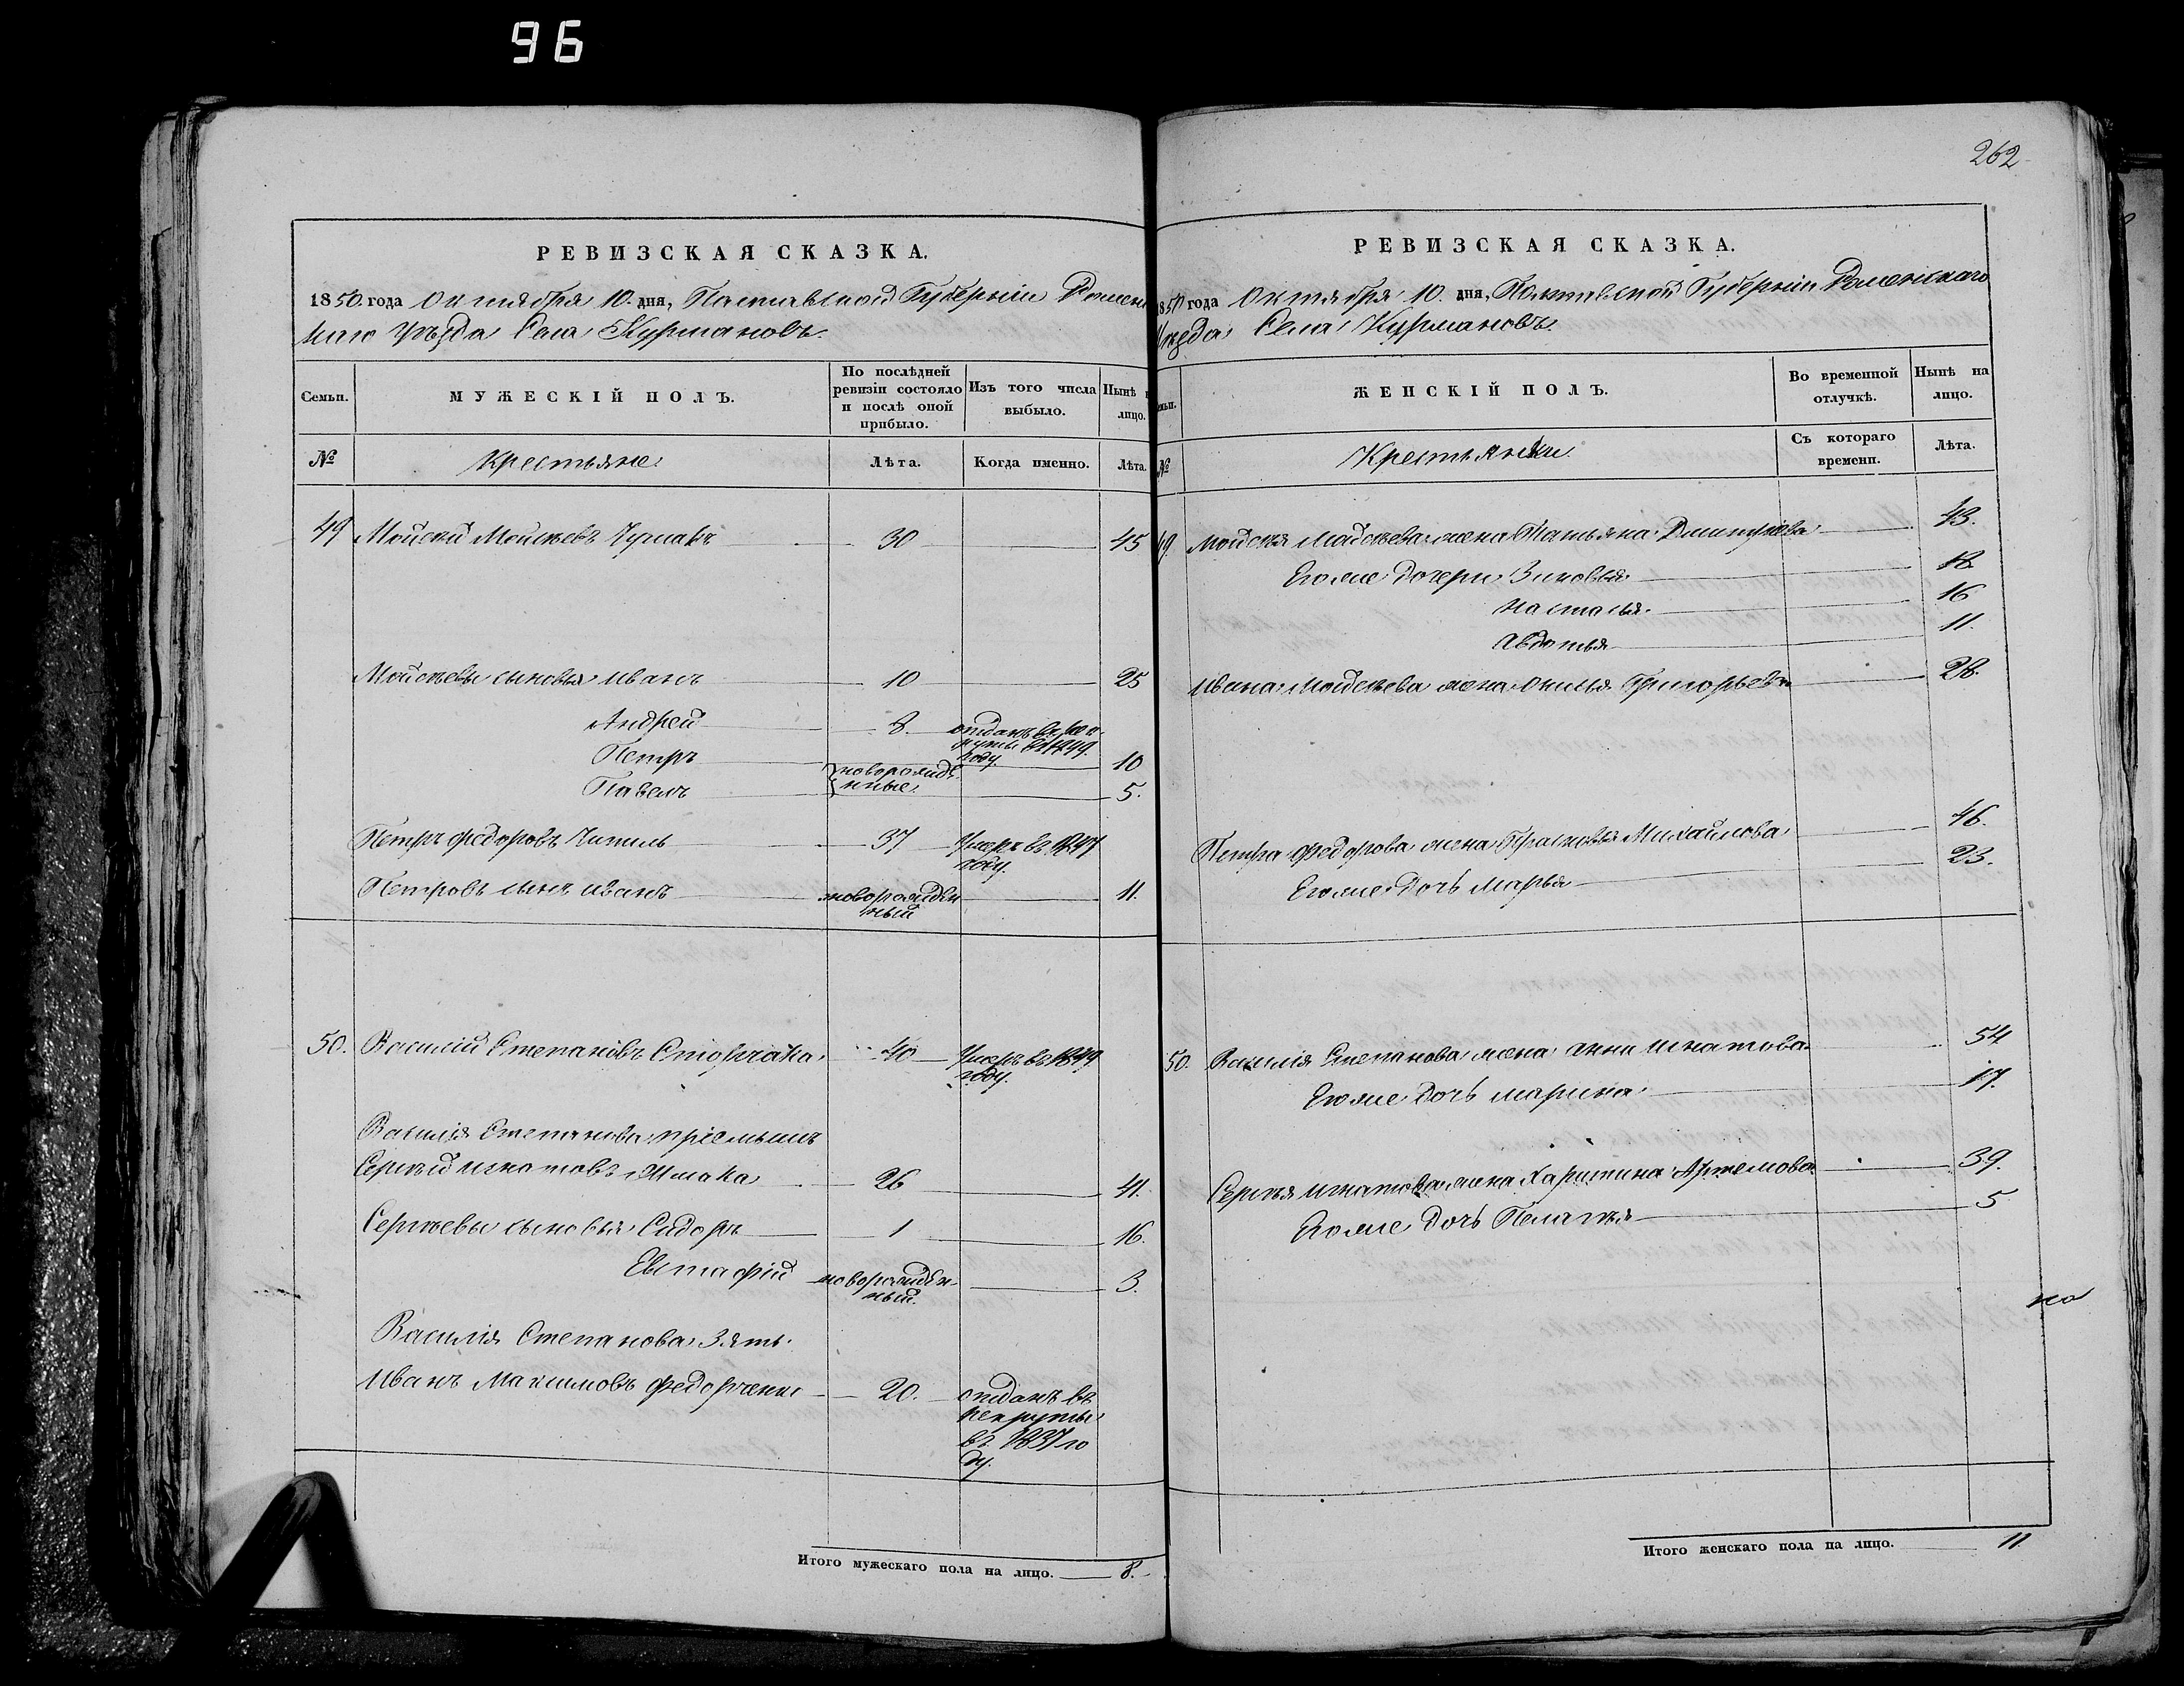 96
262
РЕВИЗСКАЯ СКАЗКА.
1850. года Октября 10. дня, Полтавской Губерніи Ромен
скаго Уѣзда Села Курмановъ.
Семьи.
МУЖЕСКІЙ ПОЛЪ.
По послѣдней ревизіи состояло и послѣ оной прибыло.
Изъ того числа выбыло.
Нынѣ н лицо.
№
Крестьяне
Лѣта.
Когда именно.
Лѣта.
49 Мойсей Мойсѣевъ Чумакъ 30 45
Мойсѣевы сыновья Иванъ 10 25
Андрей 8. отданъ въ рек
руты въ 1849.
году.
Петръ 10
новорожд
нные
Павелъ 5.
Петръ Федоровъ 37 Умеръ въ 1847
году.
Петровъ сынъ Иванъ новорожден 11.
ный
50. Василій Степановъ 40 Умеръ въ 1849
году.
Василія Степанова пріемышъ
Сергѣй Игнатовъ Шмака 26 41.
Сергѣевы сыновья Сидоръ 1 16.
Евстафій новорожден- 3.
ный.
Василія Степанова Зять
Иванъ Максимовъ Федорченко 20. отданъ въ
рекруты
въ 1837 го
ду.
Итого мужескаго пола на лицо. 8.
РЕВИЗСКАЯ СКАЗКА.
850 года Октября 10. дня, Полтавской Губерніи Роменскаго
Уѣзда Села Курмановъ.
емьи.
ЖЕНСКІЙ ПОЛЪ.
Во временной отлучкѣ.
Нынѣ на лицо.
№
Крестьянки
Съ котораго времени.
Лѣта.
49. Мойсея Мойсѣева жена Татьяна Дмитріева 43.
Его же дочери Зиновья 18
Настасья 16
Авдотья 11.
Ивана Мойсѣева жена Григорьева 28.
Петра Федорова жена Прасковья Михайлова 46.
Его же дочь Марья 23.
50. Василія Степанова жена Анна Игнатова 54
Его же дочь Марина 17.
Сергѣя Игнатова жена Харитина Артемова 39.
Его же дочь Пелагѣя 5
но
Итого женскаго пола на лицо. 11